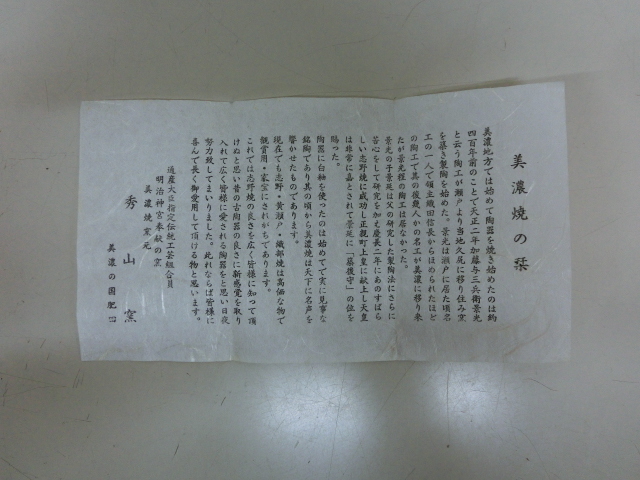 美濃焼の栞
美濃地方では始めて陶器を焼き始めたのは約
四百年前のことで天正二年加藤与三兵衛景光
と云う陶工が瀬戸より当地久尻に移り住み窯
を築き製陶を始めた。景光は瀬戸に居た頃名
工の一人で領主織田信長からほめられたほど
の陶工で其の後幾人かの名工が美濃に移り来
たが景光程の陶工は居なかった。
景光の子景延は父の研究した製陶法にさらに
苦心をして研究を加え慶長二年にあのすばら
しい志野焼に成功し正親町上皇に献上し天皇
は非常に喜とされて景延に「筑後守」の位を
賜った。
陶器に白釉を使ったのは始めてで実に見事な
銘陶であり其の頃から美濃焼は天下に名声を
響かせたものであります。
現在でも志野・黄瀬戸・織部焼は高価な物で
観賞用・家宝にされがちであります。
これでは志野焼の良さを広く皆様に知って頂
けぬと思い昔の古陶器の良さに新感覚を取り
入れて広く皆様に愛される陶器をと思い日夜
努力致してまいりました。此れならば皆様に
喜んで長く御愛用して頂ける物と思います。
通産大臣指定伝統工芸組合員
明治神宮奉献の窯
美濃焼窯元
秀山窯
美濃の国肥田